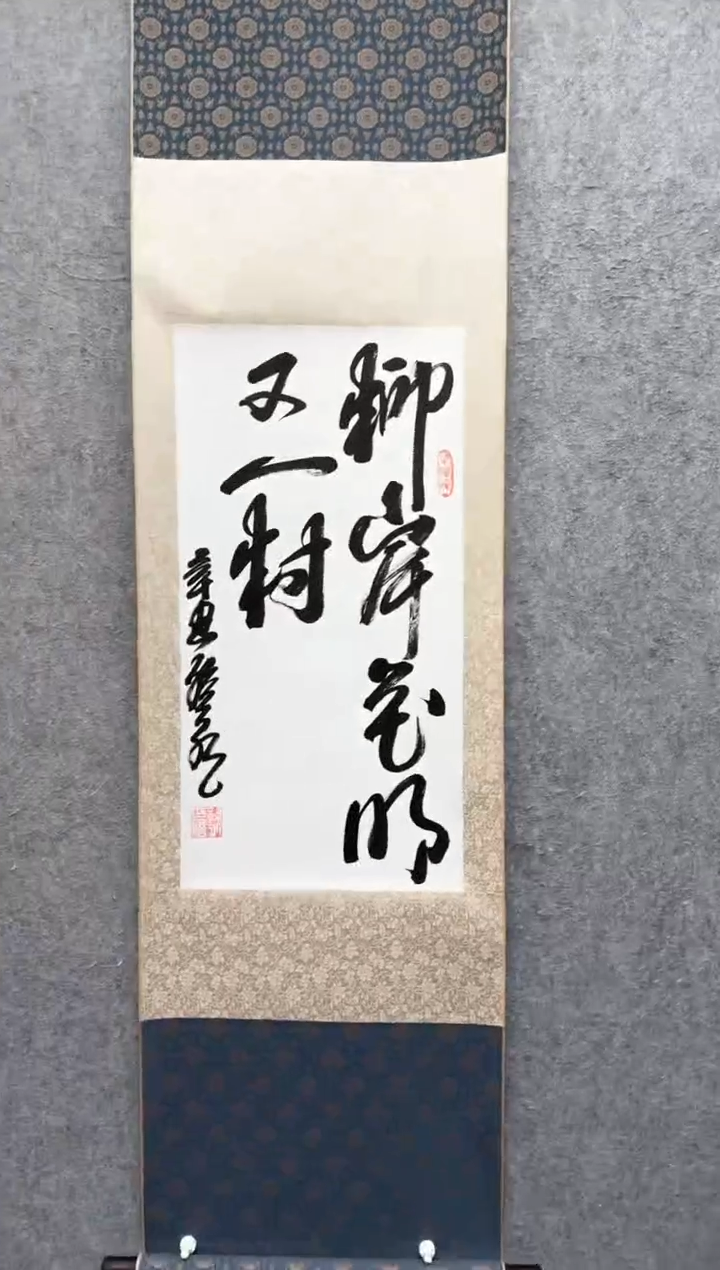 柳岸花明
又一村
辛丑